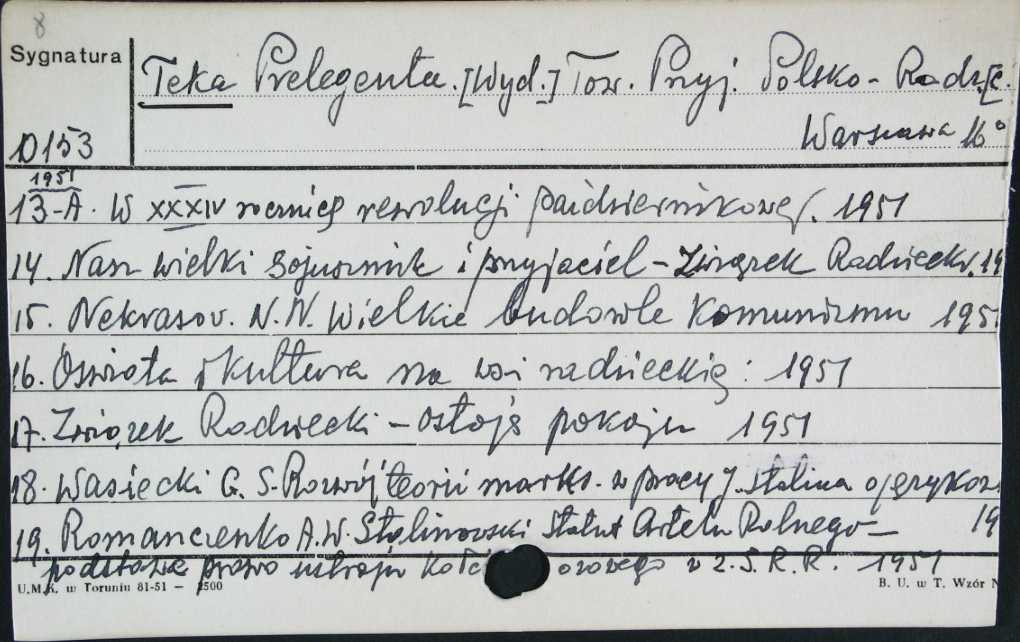 8
Sygnatura
Teka Prelegenta. [Wyd.] Tow. Przyj. Polsko-Radz[.
Warszawa 16°
D153
1951
13-A. W XXXIV rocznicę rewolucji październikowej. 1951
14. Nasz wielki sojusznik i przyjaciel - Związek Radziecki. 19
15. Nekrasov. N.N. Wielkie budowle Komunizmu 1951
16. Oświata i kultura na wsi radzieckiej: 1951
17. Związek Radziecki - ostoją pokoju 1951
18. Wasiecki G. S. Rozwój teorii marks. w pracy J. Stalina o językozn
19
19. Romanczenko A.W. Stalinowski Statut Artelu Rolnego -
podstawą prawa ustroju Kołchozowego w Z.S.R.R. 1951
U.M.K. w Toruniu 81-51 - 1500
B. U. w T. Wzór N